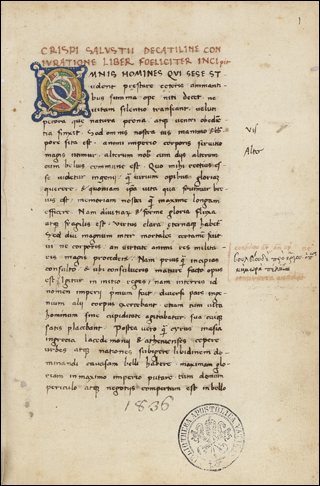 1
CRISPI SALUSTII DECATILINE CON
IURATIONE LIBER FOELICITER INCIPIT
OMNIS HOMINES QUI SESE ST
udent prestare ceteris animanti
bus summa ope niti decet ne
vitam silentio transeant veluti
pecora que natura prona atq ventri obedie
tia finxit Sed omnis nostra vis in animo &
pore sita est animi imperio corporis servitio
magis utimur alterum nobis cum dis alterum
cum beluis commune est Quo mihi rectius es
se videtur ingenii q virium opibus gloriam
querere & quoniam ipsa vita qua fruimur bre
vis est memoriam nostri q maxime longam
efficere Nam divitiarum & forme gloria fluxa
atq fragilis est Virtus clara eternaq habet
Sed diu magnum inter mortales certamen fuit
vi ne corporis an virtute animi res milita
ris magis procederet Nam prius q incipias
consulto & ubi consulueris mature facto opus
est Igitur in initio reges nam in terris id
nomen imperii primum fuit diversi pars inge
nium alii corpus exercebant etiam tum vita
hominum sine cupiditate agitabatur sua cuiq
satis placebant Postea vero q cyrus in asia
in grecia lacedemonii & athenienses cepere
urbes atq nationes subigere libidinem do
minandi causam belli habere maximam glo
riam in maximo imperio putare tum demum
periculo atq negotiis compertum est in bello
Vis
Alter
1836
BIBLIOTHECA APOSTOLICA